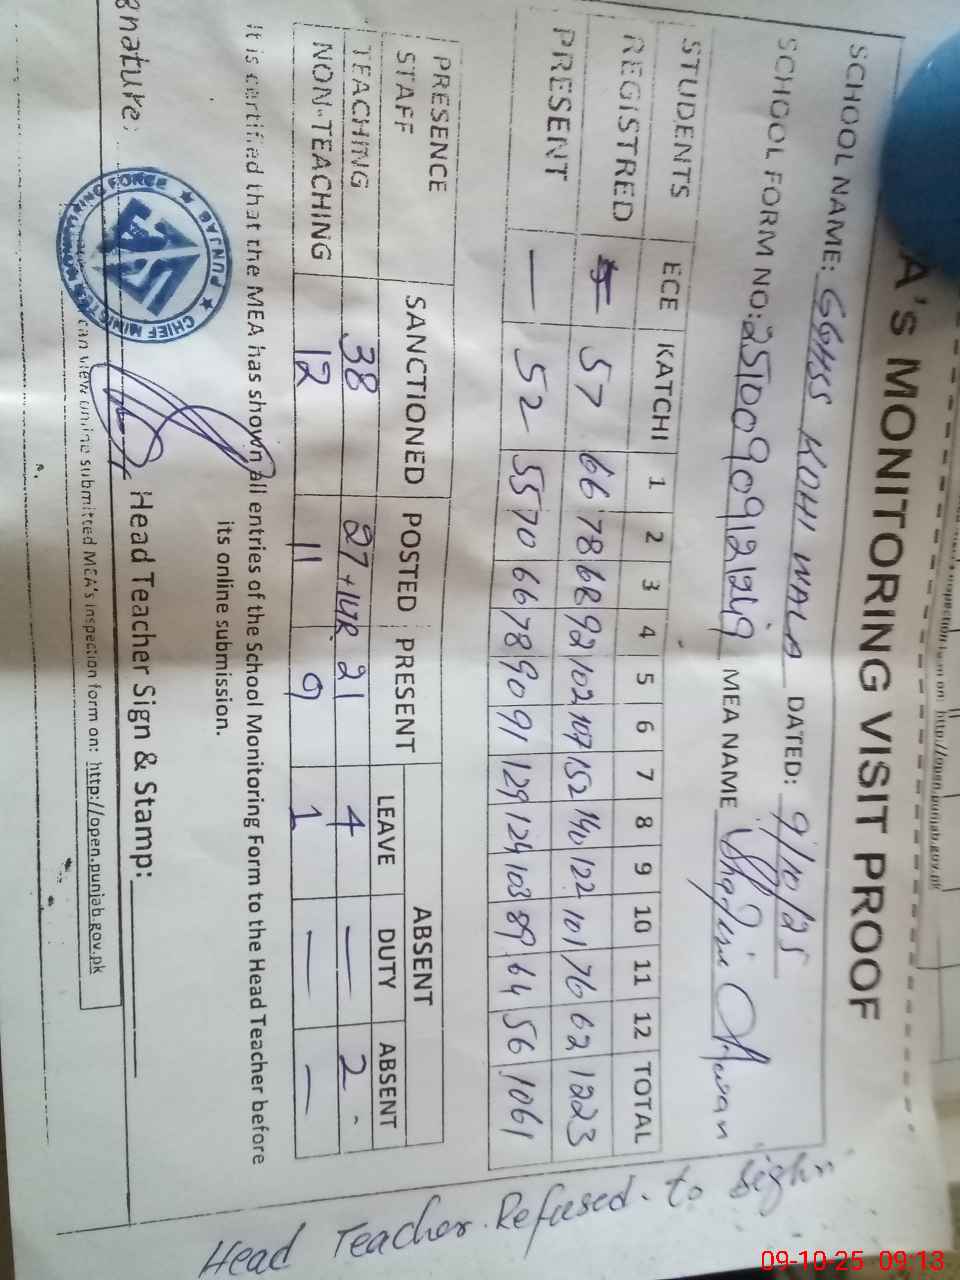 A's MONITORING VISIT PROOF
SCHOOL NAME: GGHSS KOHI WALA DATED: 9/10/25
SCHOOL FORM NO: MEA NAME
STUDENTS ECE KATCHI 1 2 3 4 5 6 7 8 9 10 11 12 TOTAL
REGISTRED 57 66 78 68 92 102 107 152 140 122 101 76 62 1223
PRESENT — 52 55 70 66 78 90 91 129 124 103 89 64 56 1061
PRESENCE STAFF SANCTIONED POSTED PRESENT ABSENT
LEAVE DUTY ABSENT
TEACHING 38 27 + 21 4 — 2
NON-TEACHING 12 11 9 1 — —
It is certified that the MEA has shown all entries of the School Monitoring Form to the Head Teacher before
its online submission.
gnature: Head Teacher Sign & Stamp:
can view online submitted MEA's inspection form on: http://open.punjab.gov.pk
CHIEF MINISTER MONITORING FORCE ★ PUNJAB ★
Head Teacher Refused to sign
http://open.punjab.gov.pk
09-10-25 09:13